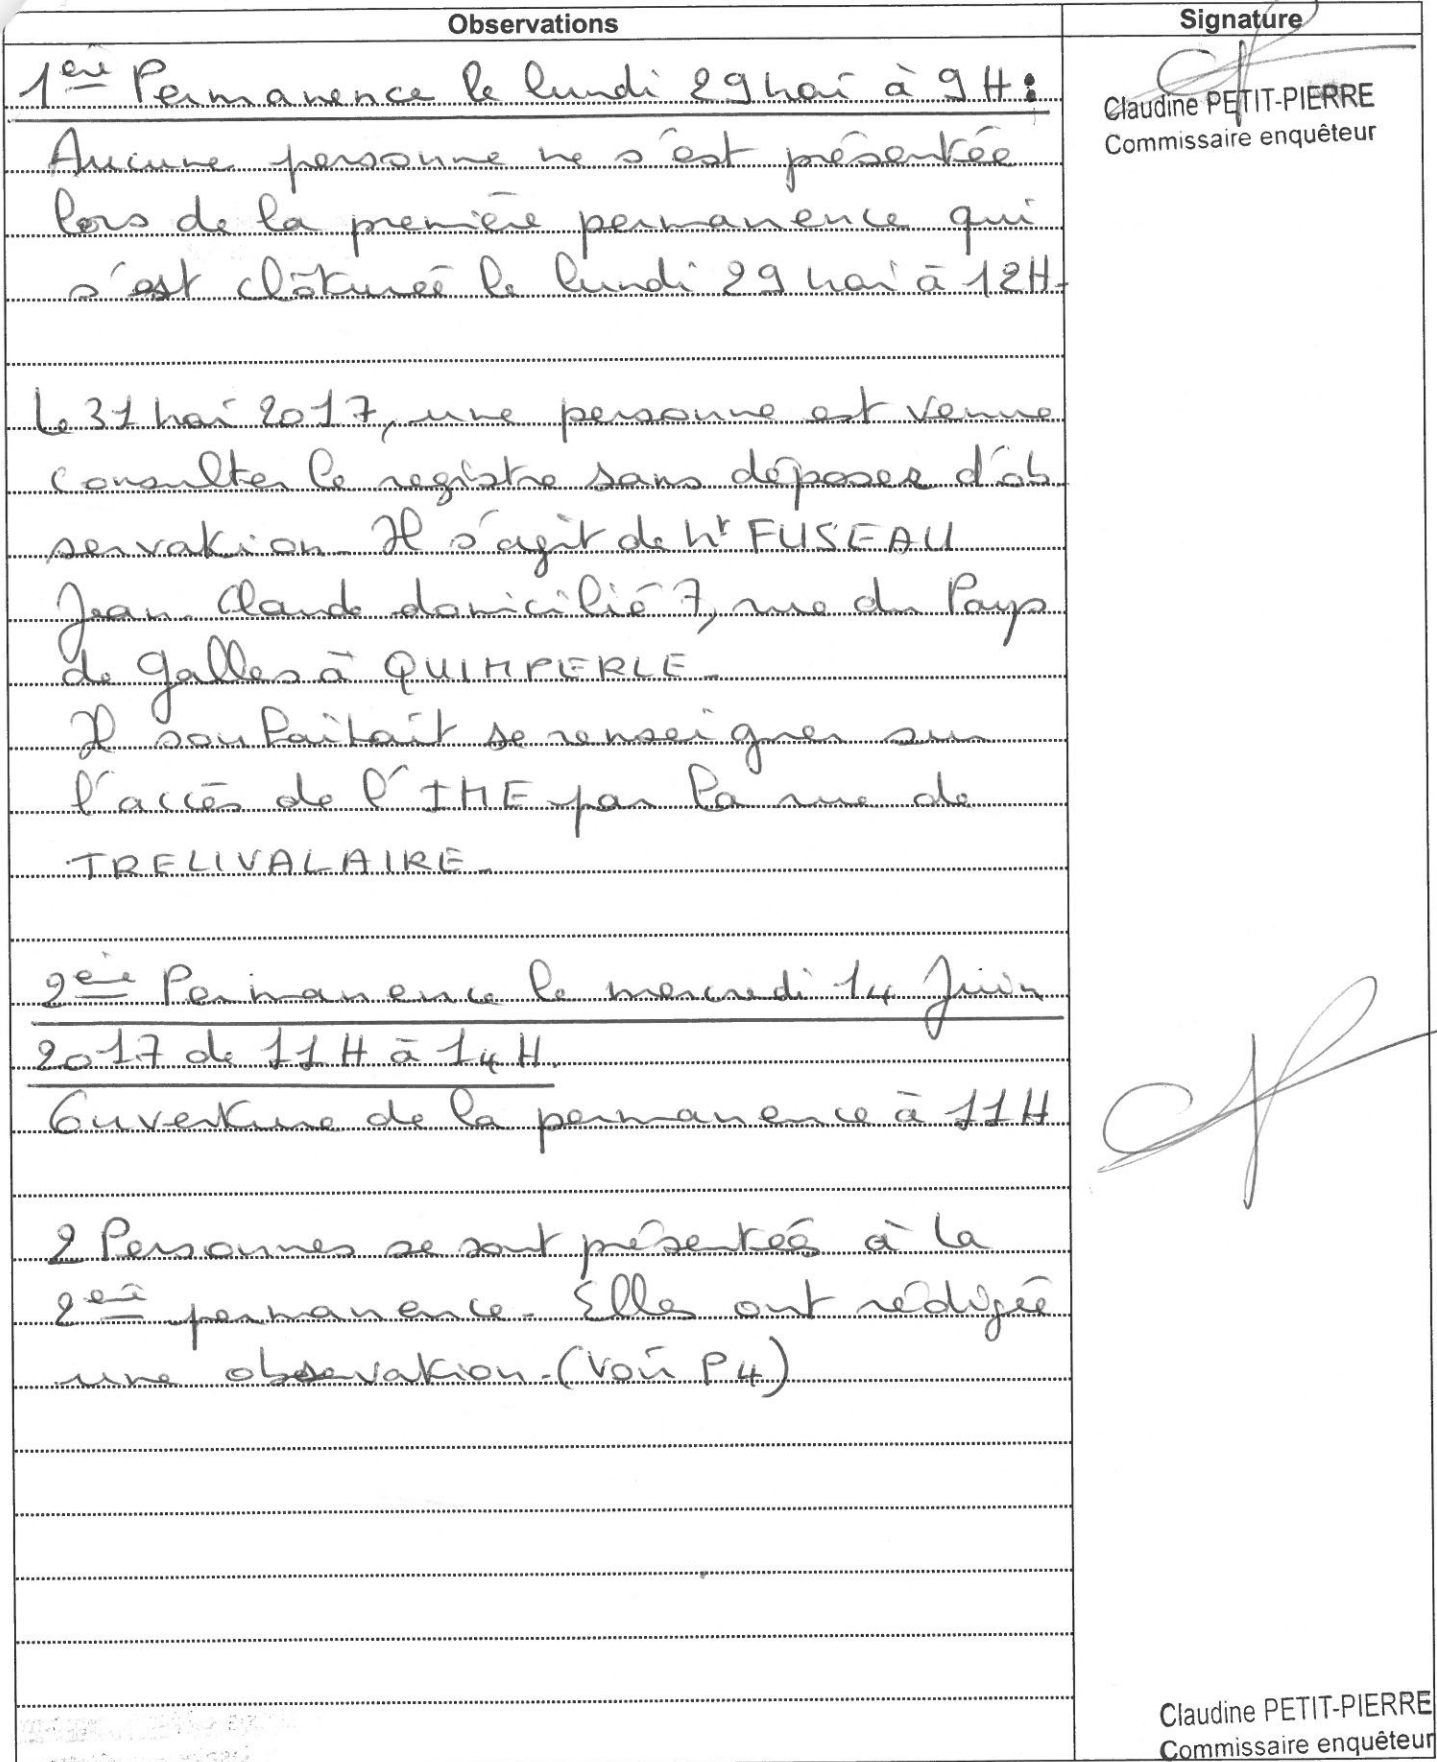 Observations
Signature
1ère Permanence le lundi 29 mai à 9H :
Claudine PETIT-PIERRE
Commissaire enquêteur
Aucune personne ne s'est présentée
lors de la première permanence qui
s'est clôturée le lundi 29 mai à 12H.
Le 31 mai 2017, une personne est venue
consulter le registre sans déposer d'ob
servation. Il s'agit de Mr FUSEAU
Jean Claude domicilié 7, rue du Pays
de Galles à QUIMPERLE.
Il souhaitait se renseigner sur
l'accès de l'IME par la rue de
TRELIVALAIRE.
2ème Permanence le mercredi 14 Juin
2017 de 11H à 14H.
Ouverture de la permanence à 11H
2 Personnes se sont présentées à la
2ème permanence. Elles ont rédigée
une observation. (Voir P4)
Claudine PETIT-PIERRE
Commissaire enquêteur